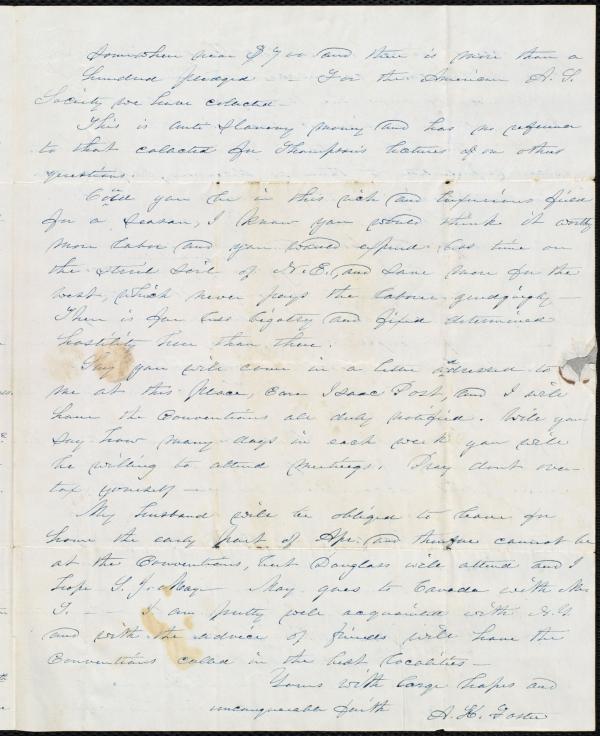 Somewhere near $700 and there is more than a
hundred pledged For the American A. S.
Society we have colected—
This is anti Slavery money and has no reference
to that colacted for Thompson's lectures of on other
questions.
Co'd you be in this rich and luxurious field
for a season, I know you would think it worthy
more labor and you would expend less time on
the steril soil of N. E., and save more for the
west, which never pays the laborer grudgingly—
There is far less bigotry and fixed determined
hostility here than there.
Say you will come in a letter adressed to
me at this place, Care Isaac Post, and I will
have the Conventions all duly notified. Will you
say how many days in each week you will
be willing to attend meetings. Pray dont over-
tax yourself—
My husband will be obliged to leave for
home the early part of Apr. and therefore cannot be
at the Conventions, but Douglass will attend and I
hope S. J. May— May goes to Canada with Mr
T—— I am pretty well acquainted with N.Y.
and with the advice of friends will have the
Conventions called in the best localities—
Yours with large hopes and
unconquerable faith
A. K. Foster